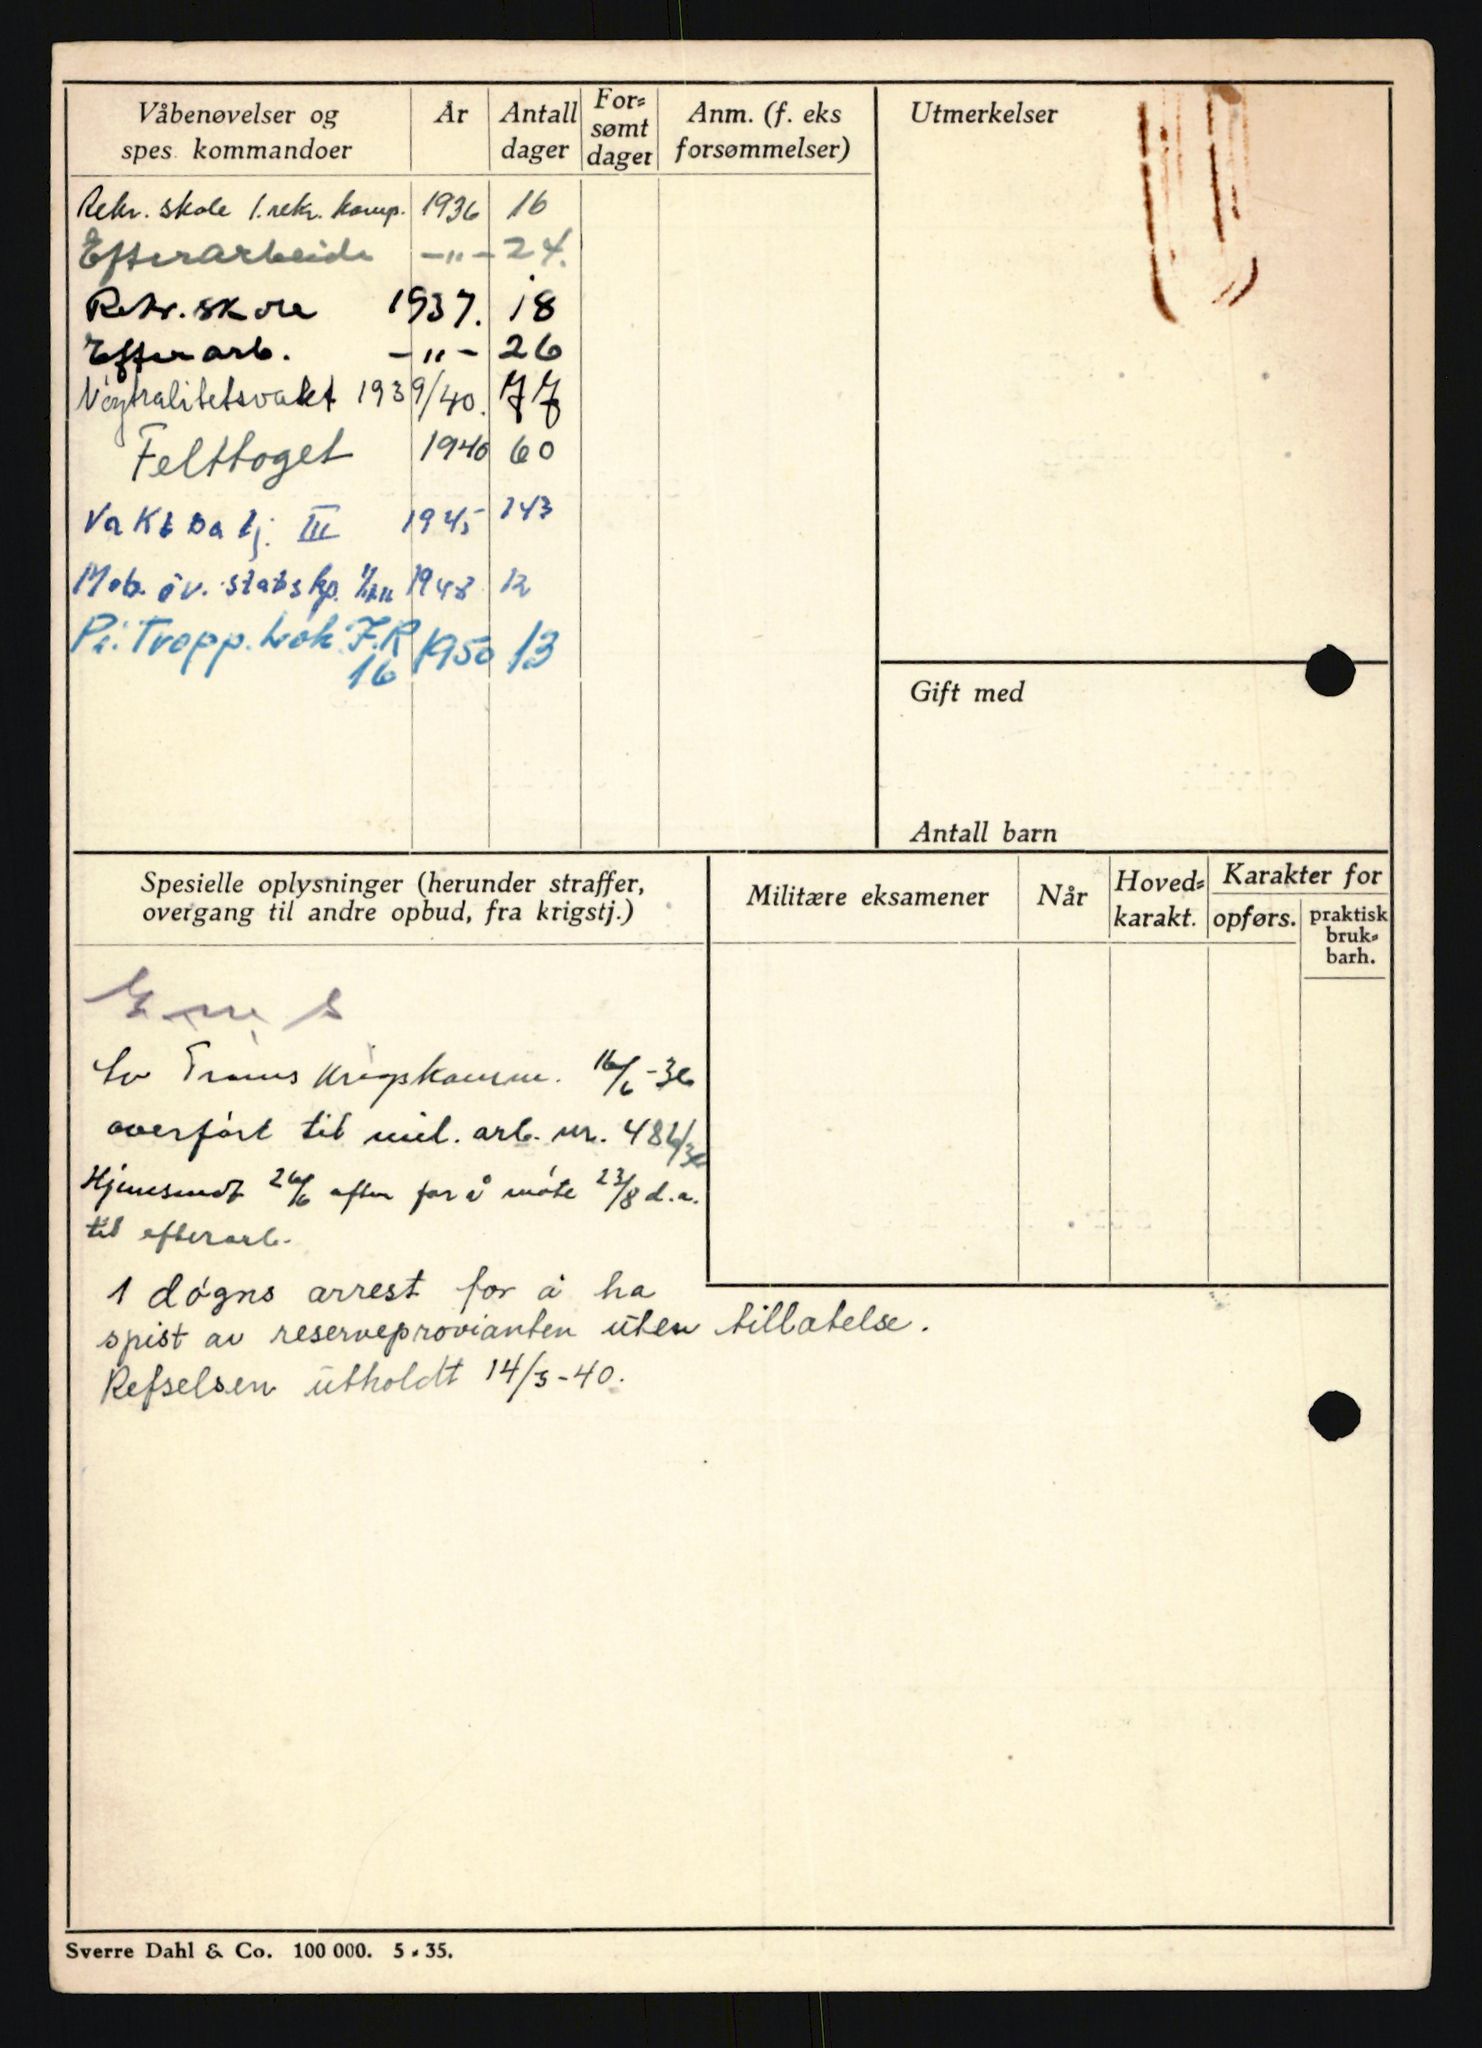 Våbenøvelser og
spes. kommandoer
År
Antall
dager
For-
sømt
dager
Anm. (f. eks
forsømmelser)
Utmerkelser
Rekr. skole 1. rekr. komp. 1936 16
Efterarbeide -"- 24.
Rekr. skole 1937. 18
Efterarb. -"- 26
Nøytralitetsvakt 1939/40. 77
Felttoget 1940 60
Vakt Batj. III 1945 143
Mob. øv. stabskp. 1948 12
Pi. Tropp. F.R 1950 13
16
Gift med
Antall barn
Spesielle oplysninger (herunder straffer,
overgang til andre opbud, fra krigstj.)
Militære eksamener
Når
Hoved-
karakt.
Karakter for
opførs.
praktisk
bruk-
barh.
Av Troms Krigskomm. 16/6-36
overført til mil. arb. nr. 486/36
Hjemsendt 26/6 efter for å møte 23/8 d.a.
til efterarb.
1 døgns arrest for å ha
spist av reserveprovianten uten tillatelse.
Refselsen utholdt 14/3-40.
Sverre Dahl & Co. 100 000. 5 - 35.